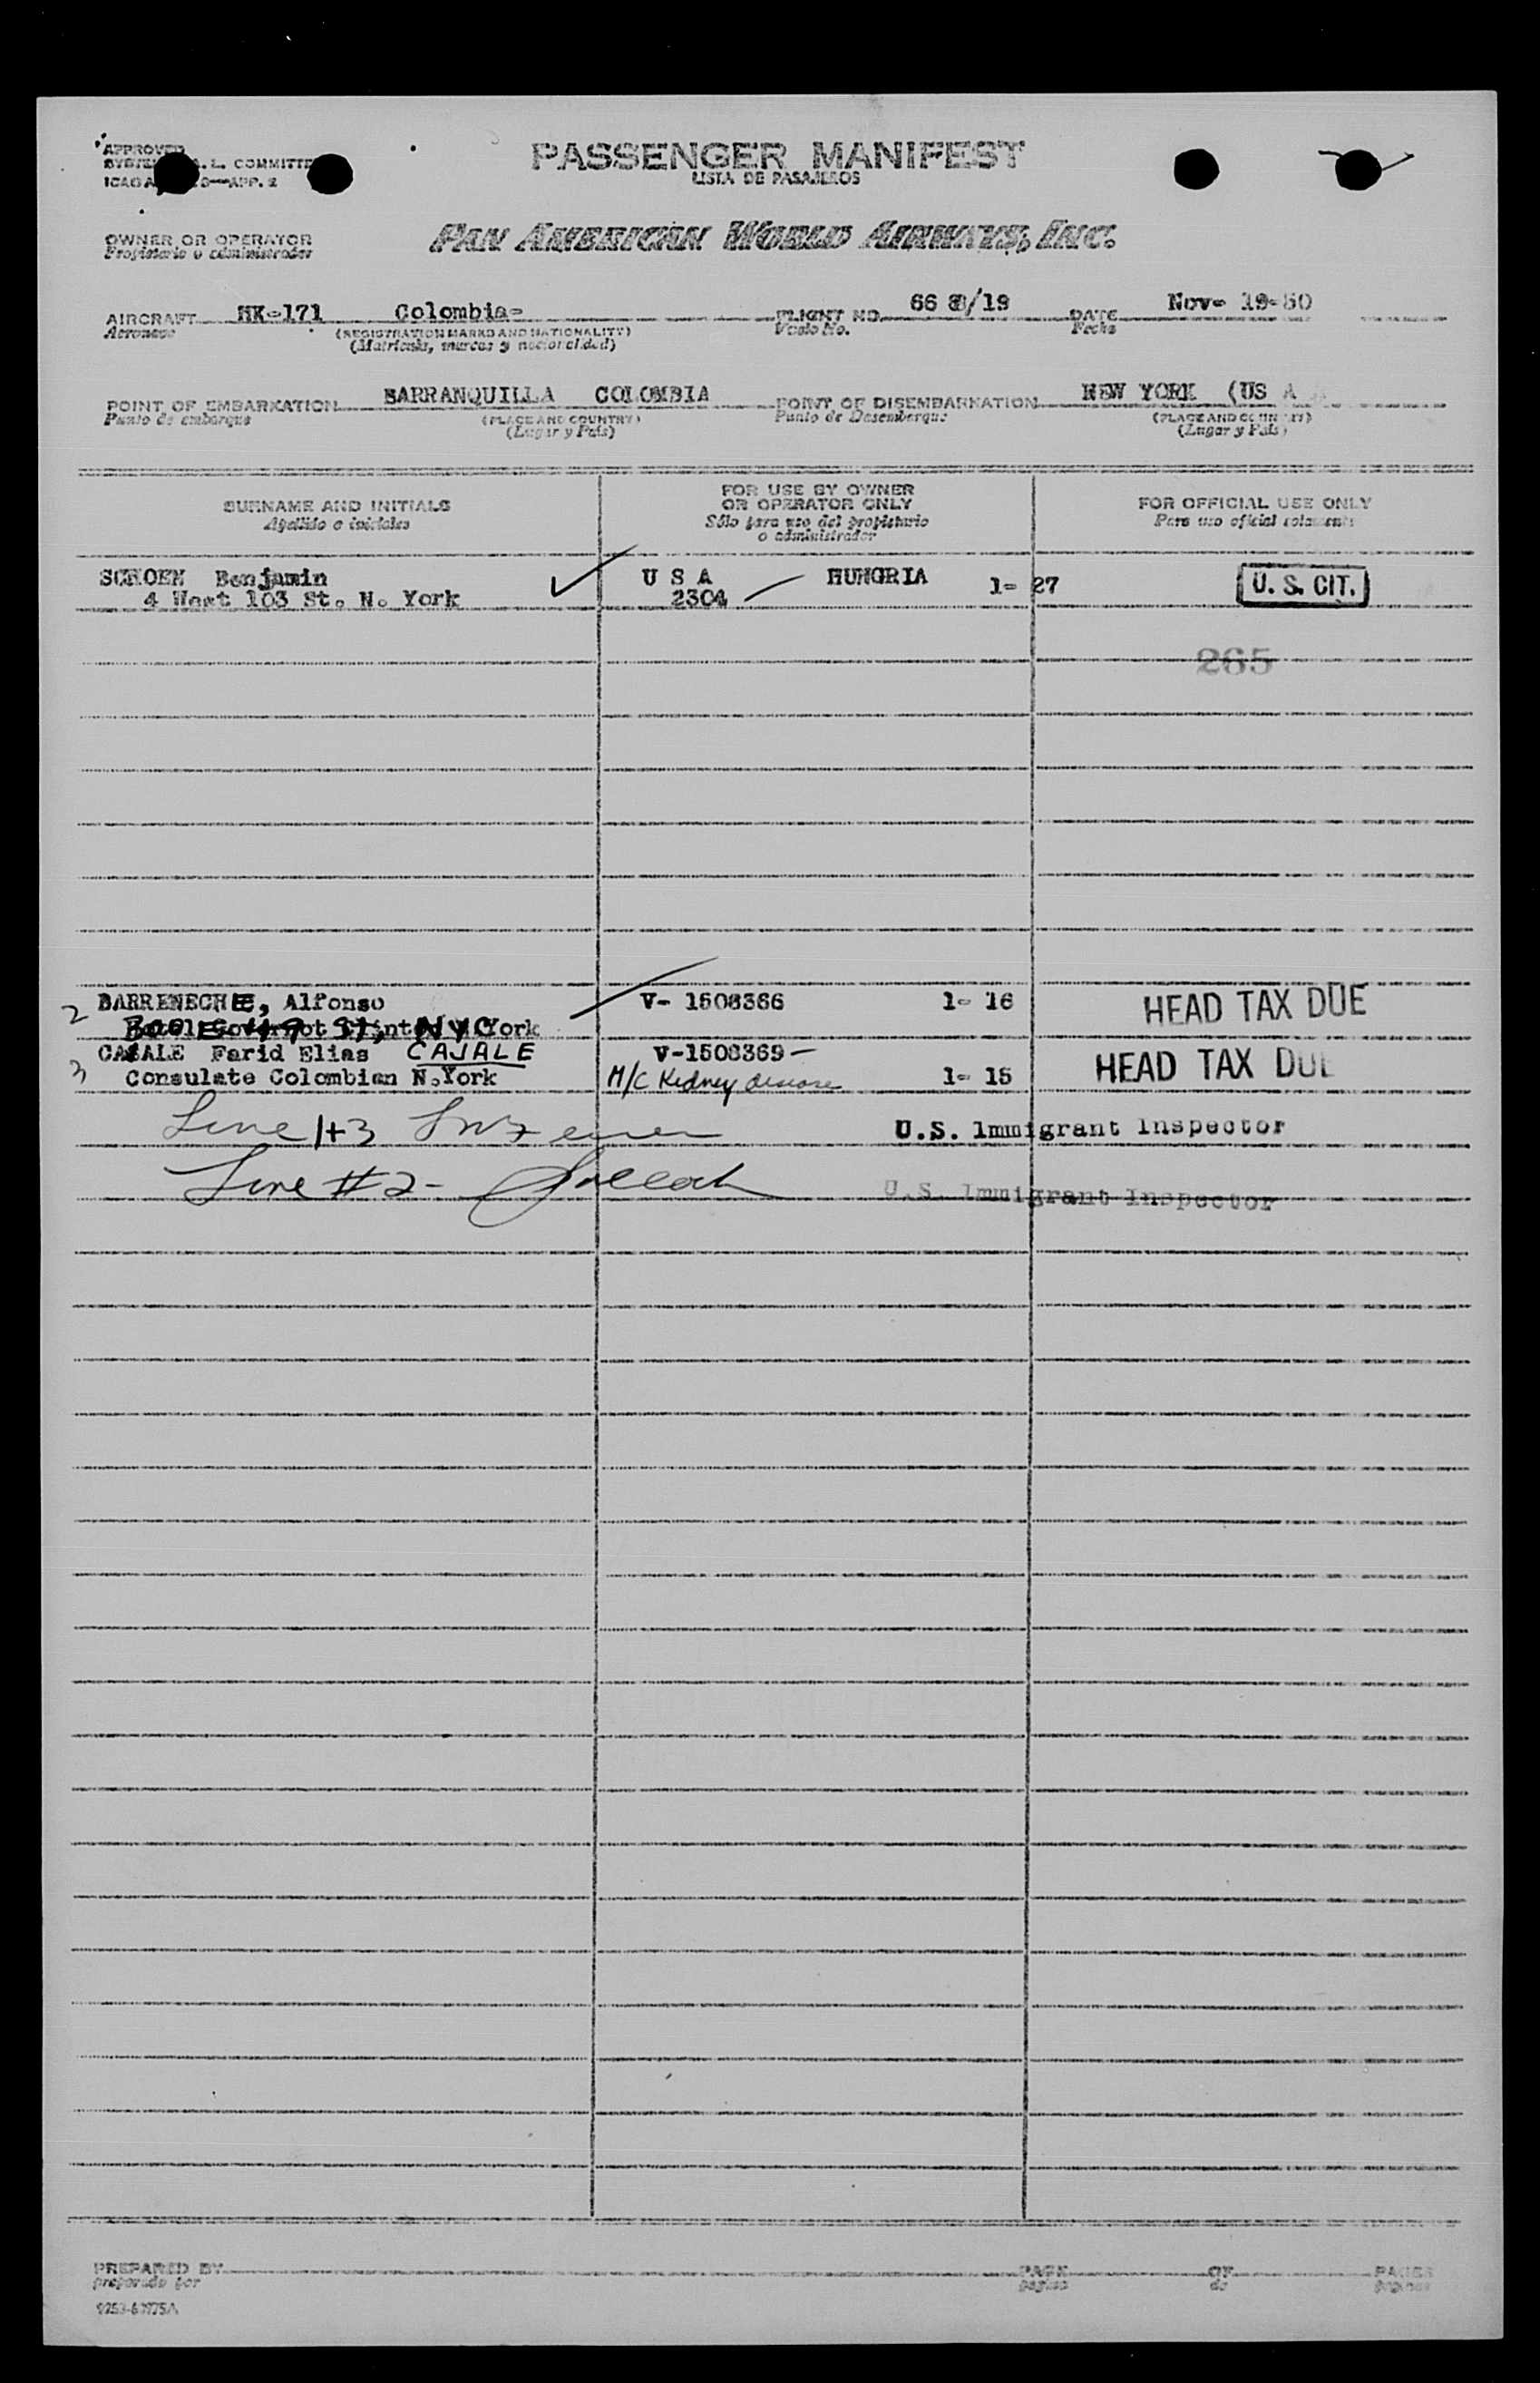 APPROVED
A. L. COMMITTE
APP. 2
PASSENGER MANIFEST
LISTA DE PASAJEROS
OWNER OR OPERATOR
Propietario o administrador
PAN AMERICAN WORLD AIRWAYS, INC.
AIRCRAFT HK-171 Colombia- FLIGHT NO. 66 /19 DATE Nov- 19-50
Aeronave (REGISTRATION MARKS AND NATIONALITY) Vuelo No. Fecha
(Matricula, marcas y nacionalidad)
POINT OF EMBARKATION BARRANQUILLA COLOMBIA POINT OF DISEMBARKATION NEW YORK (US A
Punto de embarque (PLACE AND COUNTRY) Punto de Desembarque (PLACE AND COUNTRY)
(Lugar y País) (Lugar y País)
SURNAME AND INITIALS FOR USE BY OWNER OR OPERATOR ONLY FOR OFFICIAL USE ONLY
Apellido e iniciales Sólo para uso del propietario o administrador Para uso oficial solamente
SCHOEN Benjamin U S A HUNGRIA 1- 27 U. S. CIT.
4 West 103 St. N. York 2304
265
2 BARRENECHE, Alfonso V- 1508366 1- 16 HEAD TAX DUE
St, NYC York
3 CAJALE Farid Elias CAJALE V-1508369- HEAD TAX DUE
Consulate Colombian N.York M/C Kidney disease 1- 15
Line 1+3 U.S. Immigrant Inspector
Line #2- U.S. Immigrant Inspector
PREPARED BY PAGE OF PAGES
preparado por página de páginas